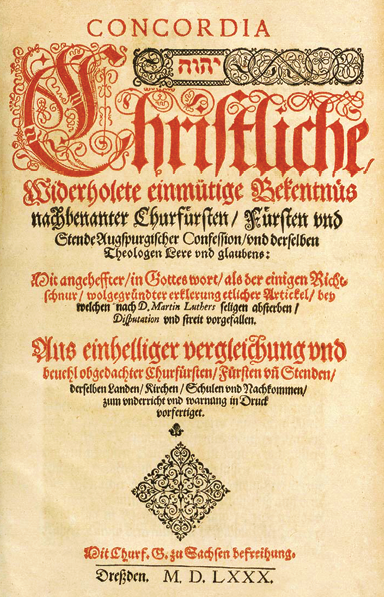 CONCORDIA
יהוה
Christliche/
Widerholete einmütige Bekentnüs
nachbenanter Churfürsten/ Fürsten vnd
Stende Augspurgischer Confession/ vnd derselben
Theologen Lere vnd glaubens:
Mit angeheffter/ in Gottes wort/ als der einigen Richt-
schnur/ wolgegründter erklerung etlicher Artickel/ bey
welchen nach D. Martin Luthers seligen absterben/
Disputation vnd streit vorgefallen.
Aus einhelliger vergleichung vnd
beuehl obgedachter Churfürsten/ Fürsten vñ Stenden/
derselben Landen/ Kirchen/ Schulen vnd Nachkommen/
zum vnderricht vnd warnung in Druck
vorfertiget.
Mit Churf. G. zu Sachsen befreihung.
Dreßden. M. D. LXXX.